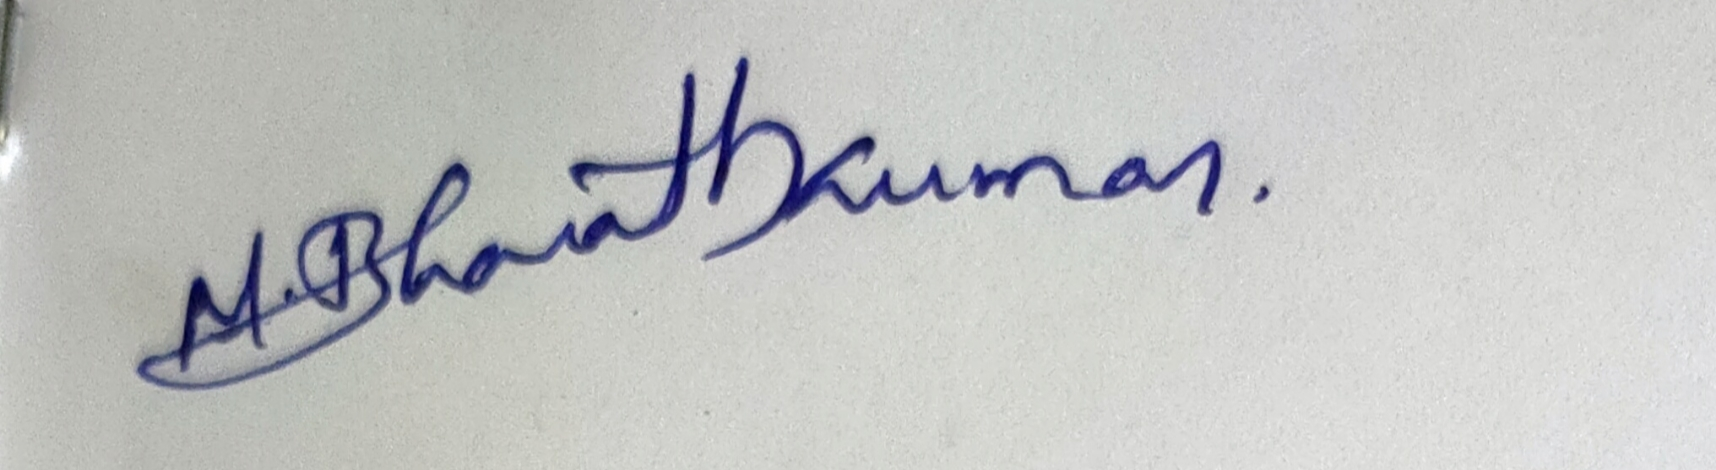 M. Bharathkumar.